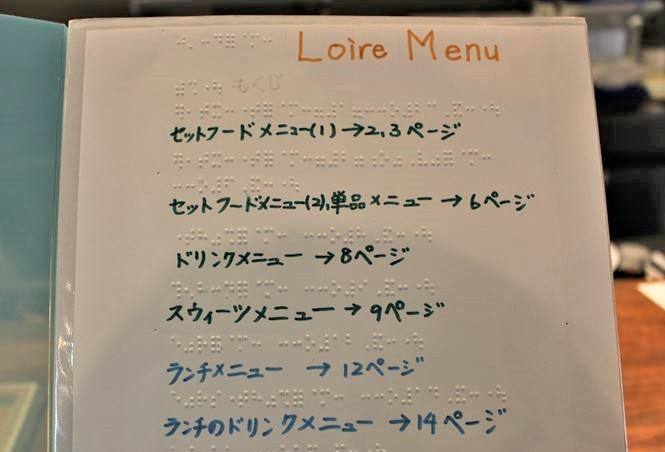 Loire Menu
もくじ
セットフードメニュー(1) →2,3ページ
セットフードメニュー(2),単品メニュー → 6ページ
ドリンクメニュー →8ページ
スウィーツメニュー → 9ページ
ランチメニュー → 12ページ
ランチのドリンクメニュー →14ページ